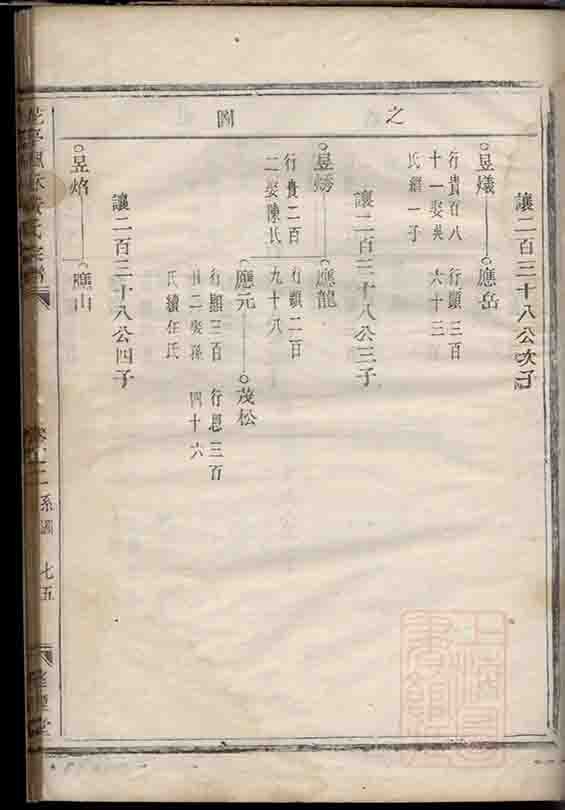 之
圖
讓二百三十八公次子
昱㸌
行貴百八
十一娶吳
氏繼一子
應岳
行顯三百
六十三
讓二百三十八公三子
昱
行貴二百
二娶陳氏
應龍
行顯二百
九十八
應元
行顯三百
廿二娶孫
氏續任氏
茂松
行恩三百
四十六
讓二百三十八公四子
昱焰
應山
系圖
七五